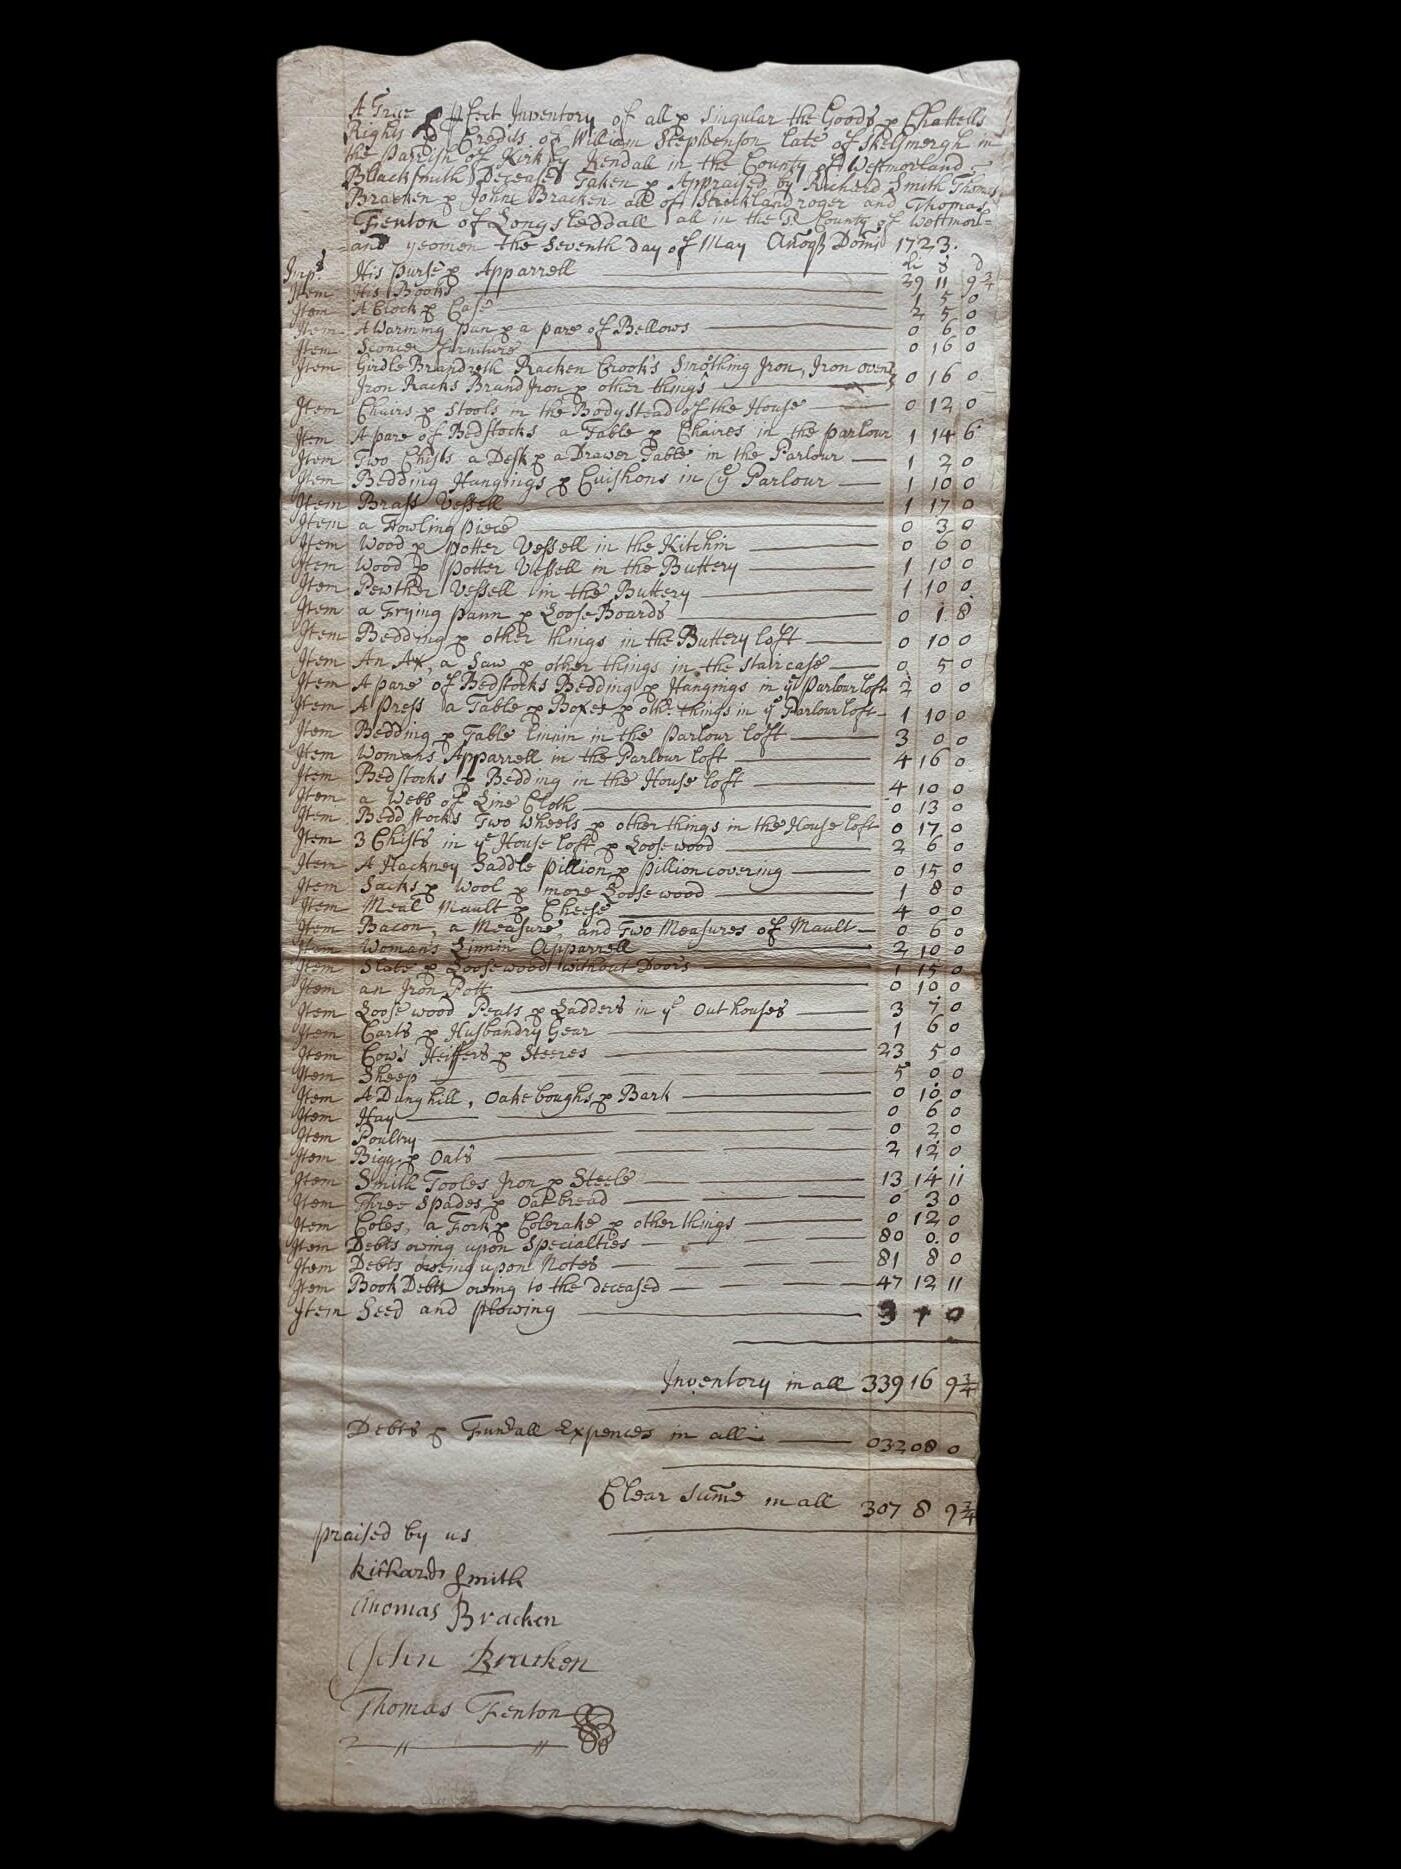 A True & pfect Inventory of all & singular the Goods & Chattells
Rights & Credits of William Stephenson late of Skelsmergh in
the Parish of Kirkby Kendall in the County of Westmorland
Blacksmith Deceased Taken & Appraised by Richard Smith Thomas
Bracken & John Bracken all of Stricklandroger and Thomas
Fenton of Longsleddall all in the sd. County of Westmorl=
and yeomen the Seventh day of May Domi 1723.
li s d
Imps. His purse & Apparrell 29 11 9¾
Item His Books 1 5 0
Item A Clock & Case 2 5 0
Item A Warming pan & a pare of Bellows 0 6 0
Item Sconce furniture 0 16 0
Item Girdle Brandreth Racken Crook's Smothing Iron, Iron oven
Iron Racks Brand Iron & other things 0 16 0
Item Chairs & stools in the Bodystead of the House 0 12 0
Item A pare of Bedstocks a Table & Chaires in the parlour 1 14 6
Item Two Chists a Desk & a Drawer Table in the Parlour 1 2 0
Item Bedding Hangings & Cuishons in ye Parlour 1 10 0
Item Brass Vessell 1 17 0
Item a Fowling piece 0 3 0
Item Wood & potter Vessell in the Kitchin 0 6 0
Item Wood & potter Vessell in the Buttery 1 10 0
Item Pewther Vessell in the Buttery 1 10 0
Item a Frying pann & Loose Boards 0 1 8
Item Bedding & other things in the Buttery loft 0 10 0
Item An Ax, a Saw & other things in the staircase 0 5 0
Item A pare of Bedstocks Bedding & Hangings in ye parlour loft 2 0 0
Item A Press a Table & Boxes & othr. things in ye Parlour loft 1 10 0
Item Bedding & Table linnin in the parlour loft 3 0 0
Item Womans Apparrell in the Parlour loft 4 16 0
Item Bedstocks & Bedding in the House loft 4 10 0
Item a Webb of Line Cloth 0 13 0
Item Bedd stocks Two wheels & other things in the House loft 0 17 0
Item 3 Chists in ye House loft & Loose wood 2 6 0
Item A Hackney Saddle pillion & pillion covering 0 15 0
Item Sacks & Wool & more Loose wood 1 8 0
Item Meal Mault & Cheese 4 0 0
Item Bacon, a Measure, and Two Measures of Mault 0 6 0
Item Woman's Linnin Apparrell 2 10 0
Item Slate & Loose wood without Doors 1 15 0
Item an Iron Pott 0 10 0
Item Loose wood Peats & Ladders in ye Out houses 3 7 0
Item Carts & Husbandry Gear 1 6 0
Item Cow's Heiffers & Steeres 23 5 0
Item Sheep 5 0 0
Item A Dunghill, Oake boughs & Bark 0 10 0
Item Hay 0 6 0
Item Poultry 0 2 0
Item Bigg & Oats 2 12 0
Item Smith Tooles Iron & Steele 13 14 11
Item Three Spades & Oat bread 0 3 0
Item Coles, a Fork & Colerake & other things 0 12 0
Item Debts owing upon Specialties 80 0 0
Item Debts oweing upon Notes 81 8 0
Item Book Debts owing to the deceased 47 12 11
Item Seed and plowing 3 1 0
Inventory in all 339 16 9¾
Debts & Funerall Expences in all 032 08 0
Clear sume in all 307 8 9¾
praised by us
Richard Smith
Thomas Bracken
John Bracken
Thomas Fenton